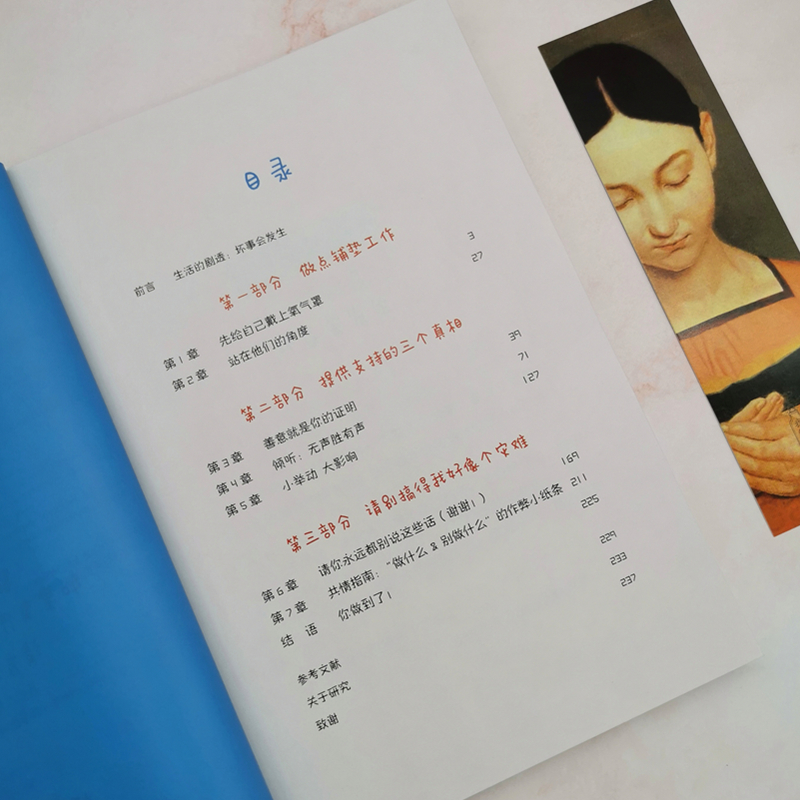 目录
前言 生活的剧透：坏事会发生
第一部分 做点铺垫工作
第1章 先给自己戴上氧气罩 3
第2章 站在他们的角度 27
第二部分 提供支持的三个真相
第3章 善意就是你的证明 39
第4章 倾听：无声胜有声 71
第5章 小举动 大影响 127
第三部分 请别搞得我好像个灾难
第6章 请你永远都别说这些话（谢谢！） 169
第7章 共情指南：“做什么&别做什么”的作弊小纸条 211
结语 你做到了！ 225
参考文献 229
关于研究 233
致谢 237